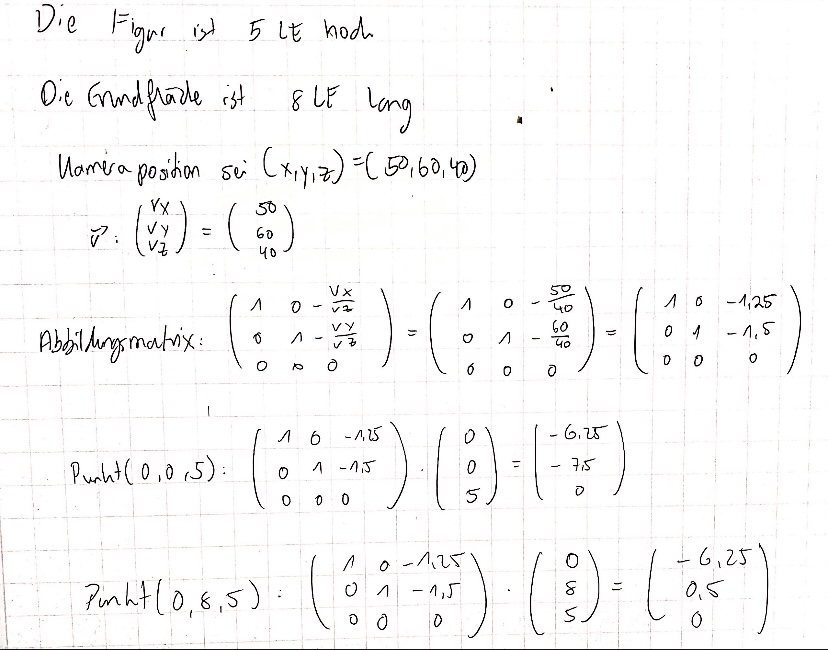 Die Figur ist 5 LE hoch
Die Grundfläche ist 8 LE lang
Kamera position sei (x,y,z)=(50,60,40)
v⃗: (vx vy vz) = (50 60 40)
Abbildungsmatrix: (1 0 -vx/vz; 0 1 -vy/vz; 0 0 0) = (1 0 -50/40; 0 1 -60/40; 0 0 0) = (1 0 -1,25; 0 1 -1,5; 0 0 0)
Punkt(0,0,5): (1 0 -1,25; 0 1 -1,5; 0 0 0) · (0 0 5) = (-6,25 -7,5 0)
Punkt(0,8,5): (1 0 -1,25; 0 1 -1,5; 0 0 0) · (0 8 5) = (-6,25 0,5 0)